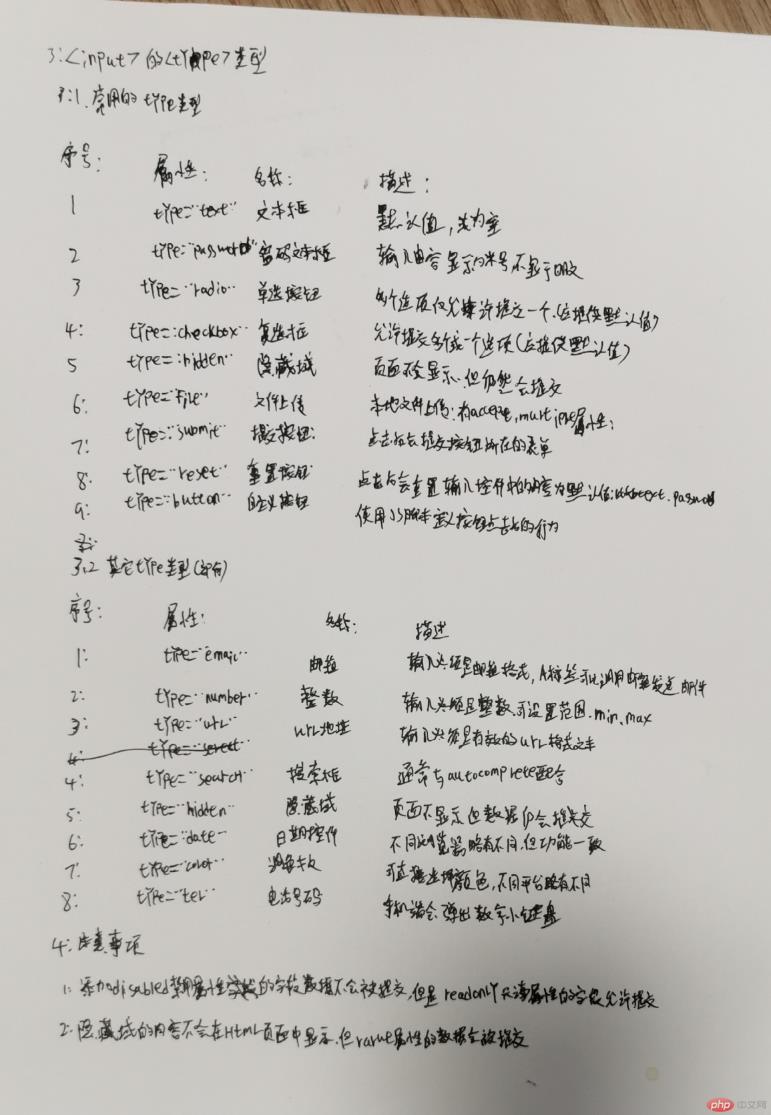 3:<input>的<type>类型
3:1.常用的type类型
序号: 属性: 名称: 描述:
1 type="text" 文本框 默认值,类为空
2 type="password" 密码文本框 输入内容显示为米号不显示明文
3 type="radio" 单选按钮 多个选项仅允许提交一个(应提供默认值)
4: type="checkbox" 复选框 允许提交多个或一个选项(应提供默认值)
5 type="hidden" 隐藏域 页面不会显示.但仍然会提交
6: type="File" 文件上传 本地文件上传:有accept,multiple属性:
7: type="submit" 提交按钮: 点击后会提交按钮所在的表单
8: type="reset" 重置按钮 点击后会重置输入控件中的内容为默认值:text.passwod
9: type="button" 自定义按钮 使用JS脚本定义按钮点击的行为
3.2 其它type类型(部分)
序号: 属性: 名称: 描述
1: type="email" 邮箱 输入必须是邮箱格式,A标签可以调用邮箱发送邮件
2: type="number" 整数 输入必须是整数.可设置范围.min.max
3: type="url" url地址 输入必须是有效的url格式文本
4: type="search" 搜索框 通常与autocomplete配合
5: type="hidden" 隐藏域 页面不显示但数据仍会提交
6: type="date" 日期控件 不同浏览器略有不同.但功能一致
7: type="color" 调色板 可直接选择颜色,不同平台略有不同
8: type="tel" 电话号码 手机端会弹出数字小键盘
4:注意事项
1:添加disabled禁用属性的字段数据不会被提交,但是readonly只读属性的字段允许提交
2:隐藏域的内容不会在Html页面中显示.但value属性的数据会被提交
php 中文网